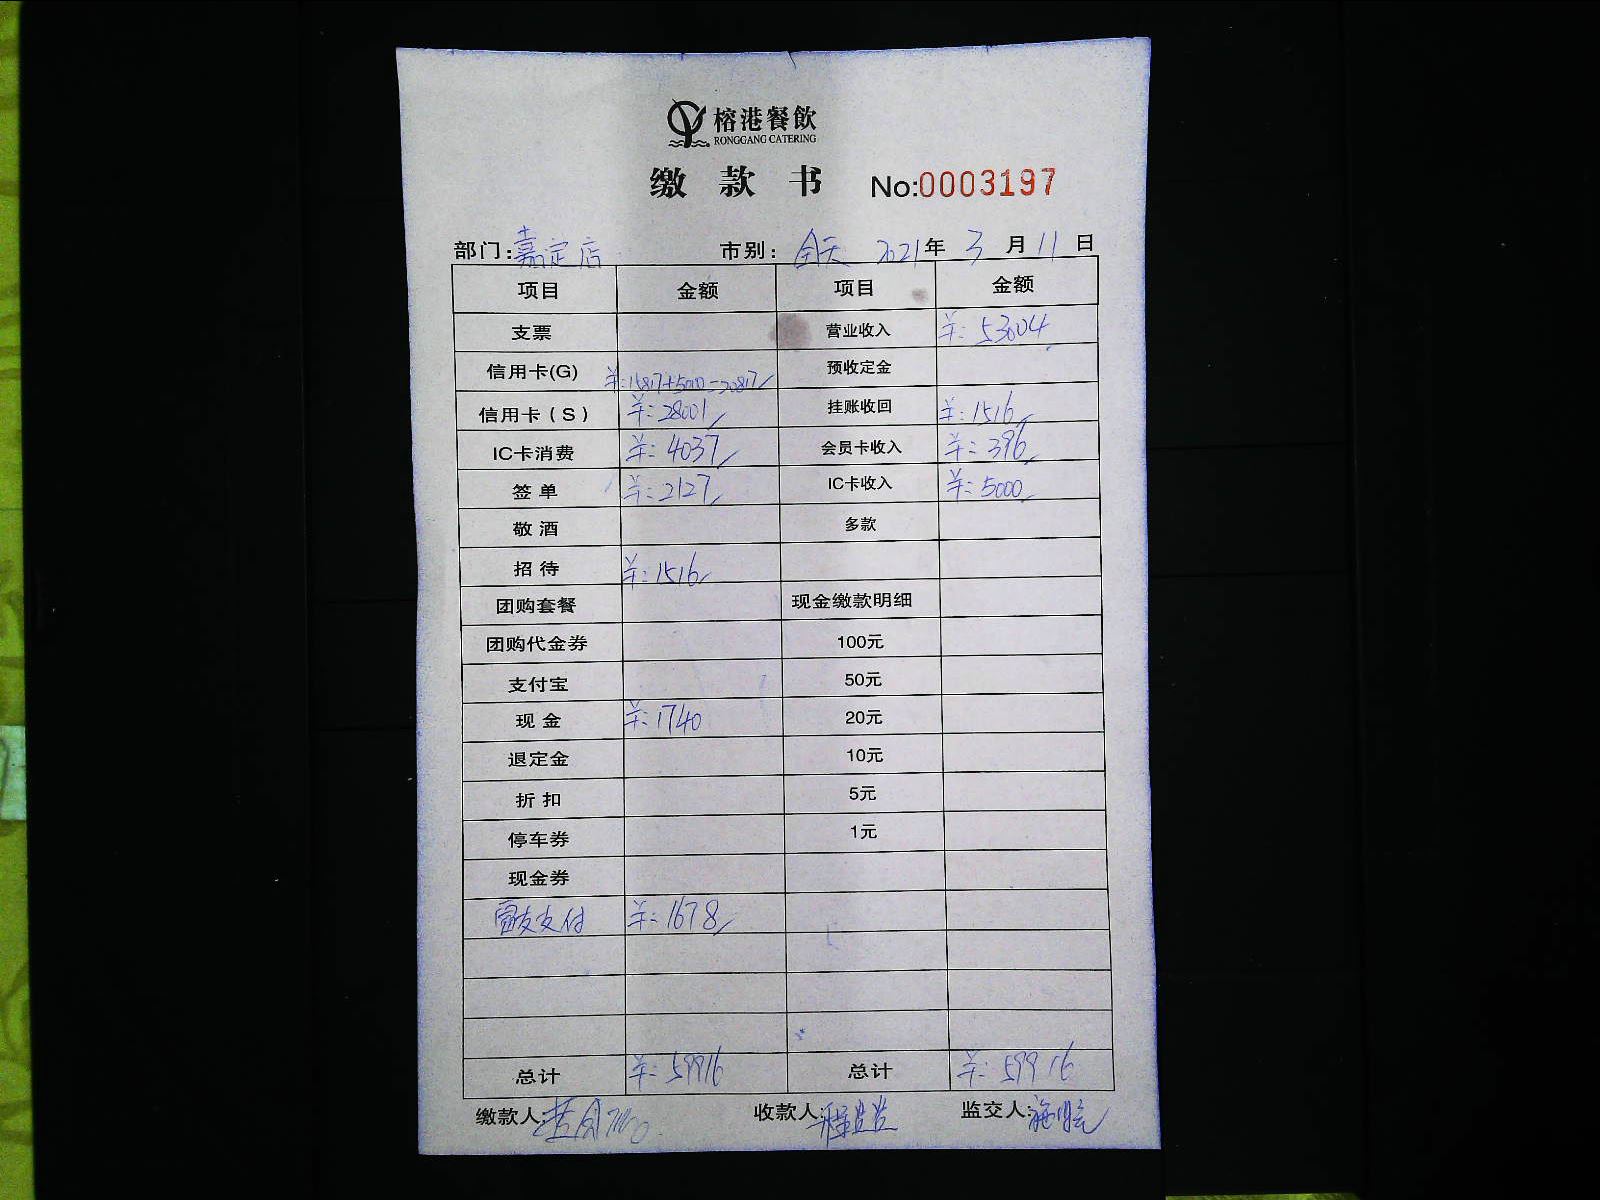 榕港餐飲
RONGGANG CATERING
缴款书 No:0003197
部门:嘉定店 市别:全天 2021年3月11日
项目 金额 项目 金额
支票 营业收入 ¥:53004
信用卡(G) ¥:15817+5000=20817 预收定金
信用卡(S) ¥:28001 挂账收回 ¥:1516
IC卡消费 ¥:4037 会员卡收入 ¥:396
签单 ¥:2127 IC卡收入 ¥:5000
敬酒 多款
招待 ¥:1516
团购套餐 现金缴款明细
团购代金券 100元
支付宝 50元
现金 ¥:1740 20元
退定金 10元
折扣 5元
停车券 1元
现金券
支付 ¥:1678
总计 ¥:59916 总计 ¥:59916
缴款人: 收款人: 监交人: